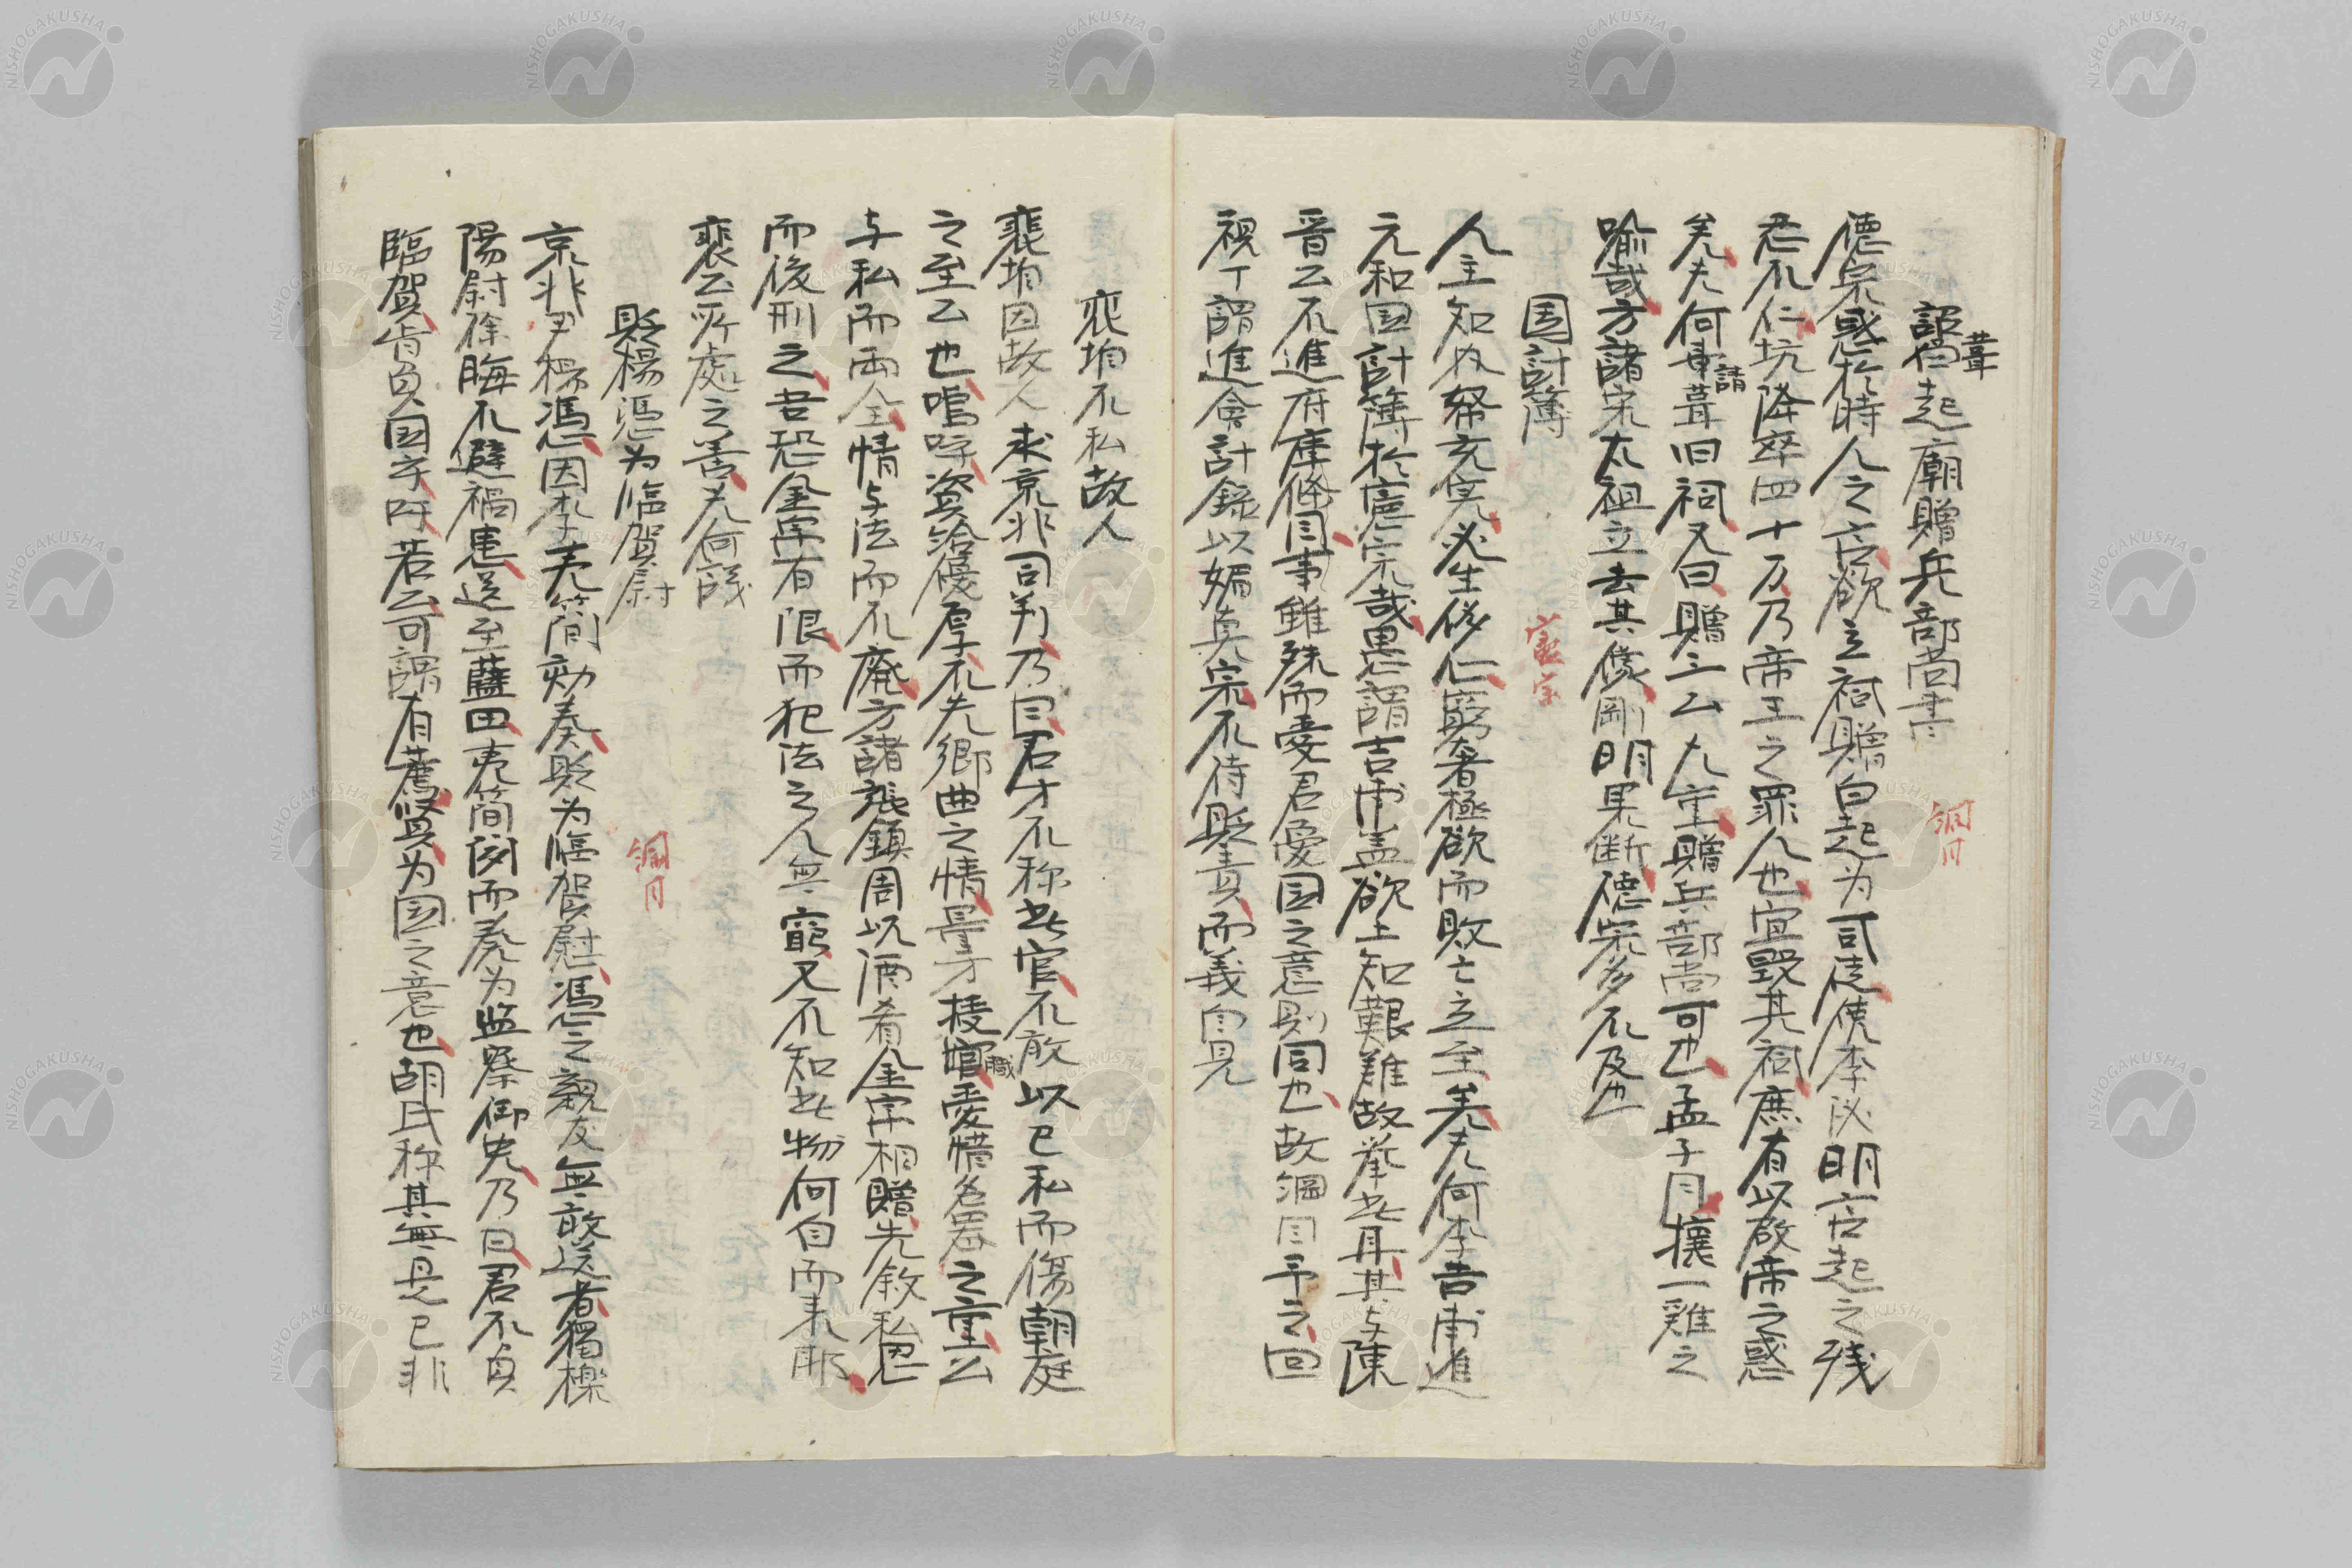 詔葺白起廟贈兵部尚書 綱目
德宗惑於時人之言欲立祠贈白起为司徒使李泌明言起之残
忍不仁坑降卒四十万乃帝王之罪人也宜毀其祠庶有以啟帝之惑
矣夫何事請葺旧祠又曰贈三公太重贈兵部尚可也孟子月攘一雞之
喻哉方諸宋太祖立去其像剛明果断德宗多不及也
国計簿 憲宗
人主知内帑充実必生侈仁窮奢極欲而敗亡立至矣夫何李吉甫進
元和国計簿於憲宗哉愚謂吉甫盖欲上知艱難故举此耳其与陳
晋公不進府庫條同事雖殊而愛君憂国之意則同也故綱目予之回
視丁謂進會計錄以媚真宗不待貶責而義自見
裴垍不私故人
裴垍因故人求京兆司判乃曰君才不称此官不敢以己私而傷朝庭
之至公也嗚呼資給優厚不失鄉曲之情量才授職愛惜名器之重公
与私而両全情与法而不廃方諸張鎮周以酒肴金字相贈先敘私恩
而後刑之吾恐金字有限而犯法之人無窮又不知此物何自而来耶
裴公所處之善夫何議
貶楊憑为臨賀尉 綱目
京兆尹楊憑因李夷簡劾奏貶为臨賀尉憑之親友無敢送者獨櫟
陽尉徐晦不避禍患送至藍田夷簡例而奏为監察御史乃曰君不負
臨賀肯負国乎吁若公可謂有薦賢为国之意也胡氏称其無是已非